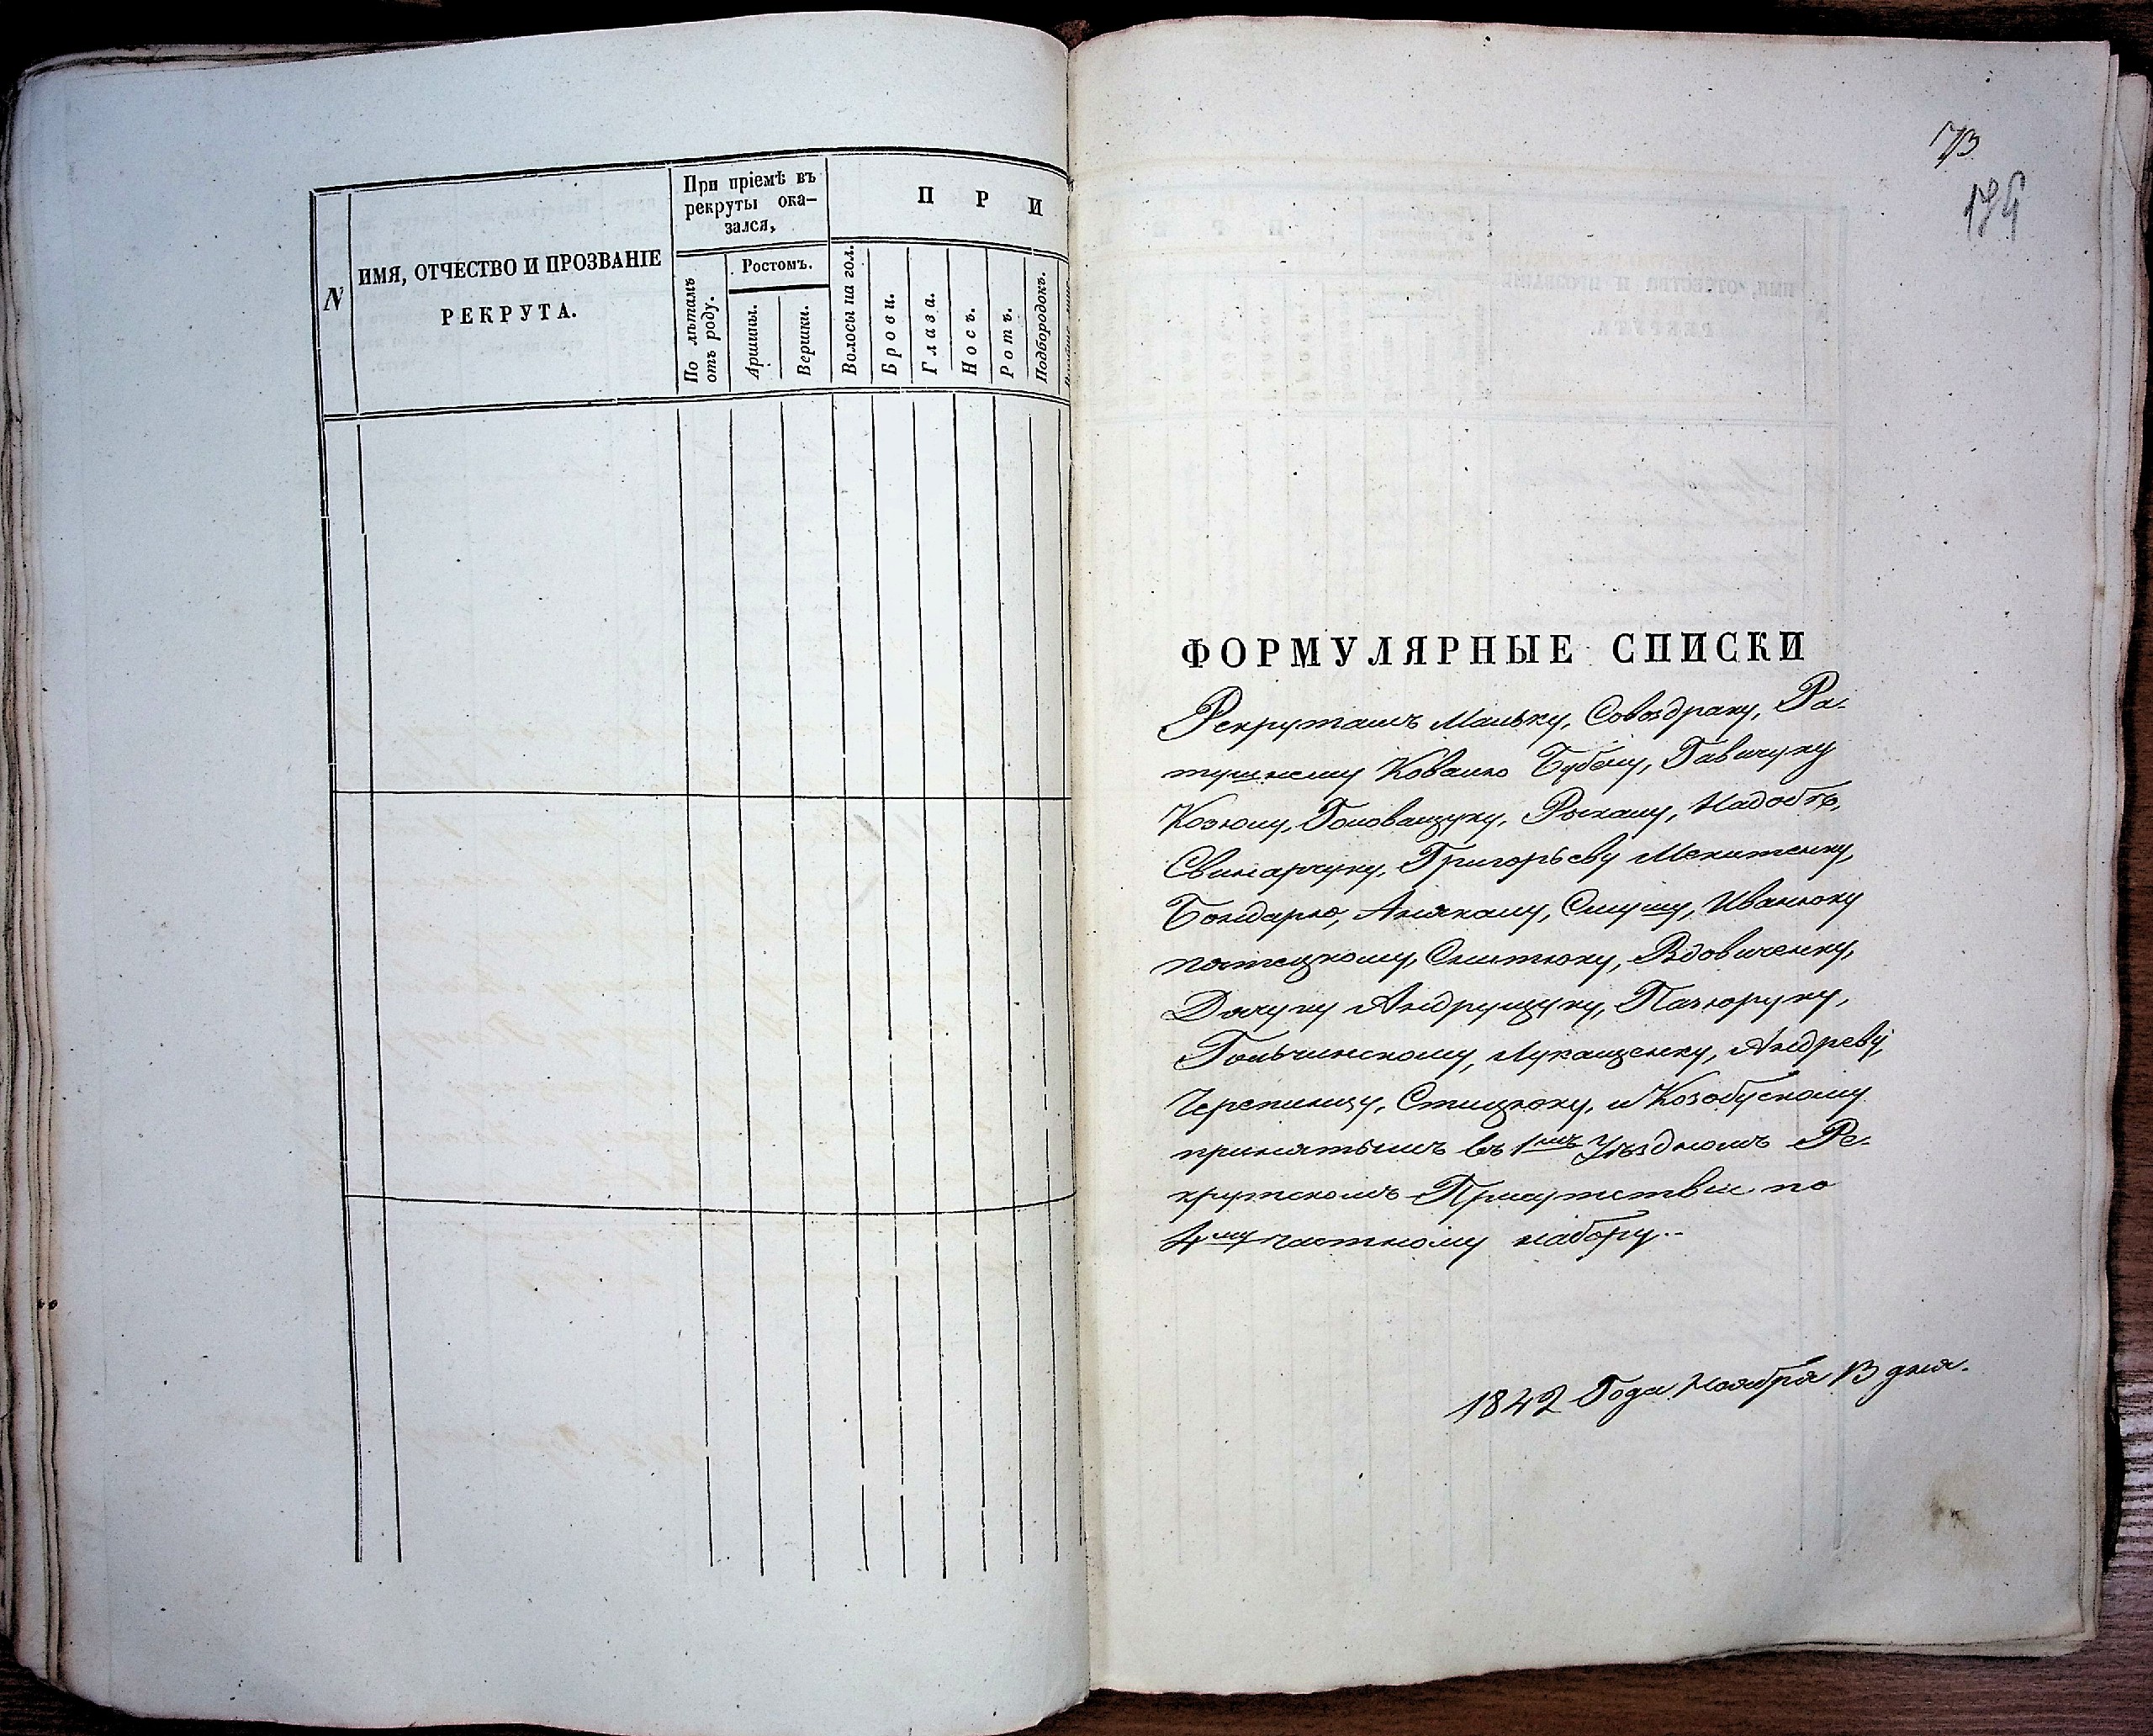 N
ИМЯ, ОТЧЕСТВО И ПРОЗВАНІЕ
РЕКРУТА.
При пріемѣ въ
рекруты ока-
зался,
По лѣтамъ
отъ роду.
Ростомъ.
Аршины.
Вершки.
П Р И
Волосы на гол.
Брови.
Глаза.
Носъ.
Ротъ.
Подбородокъ.
73
ФОРМУЛЯРНЫЕ СПИСКИ
Рекрутамъ Маньку, Совоздраку, Ра-
тушнему Ковалю Бубену, Гавчуку
Козюму, Головащуку, Рыкану, Надобѣ,
Свинарчуку, Григорьеву Мекитенку,
Бондарю, Слушу, Иванюку
Снитюку, Вдовиченку,
Дячуку Андрущуку, Пазюруку,
Гольчинскому, Лукащенку, Андреву,
Черепинцу, Стицюку, и Козобускому
принятымъ въ 1мъ Уѣздномъ Ре-
крутскомъ Присутствіи по
4му частному набору..
1842 Года Ноября 13 дня.